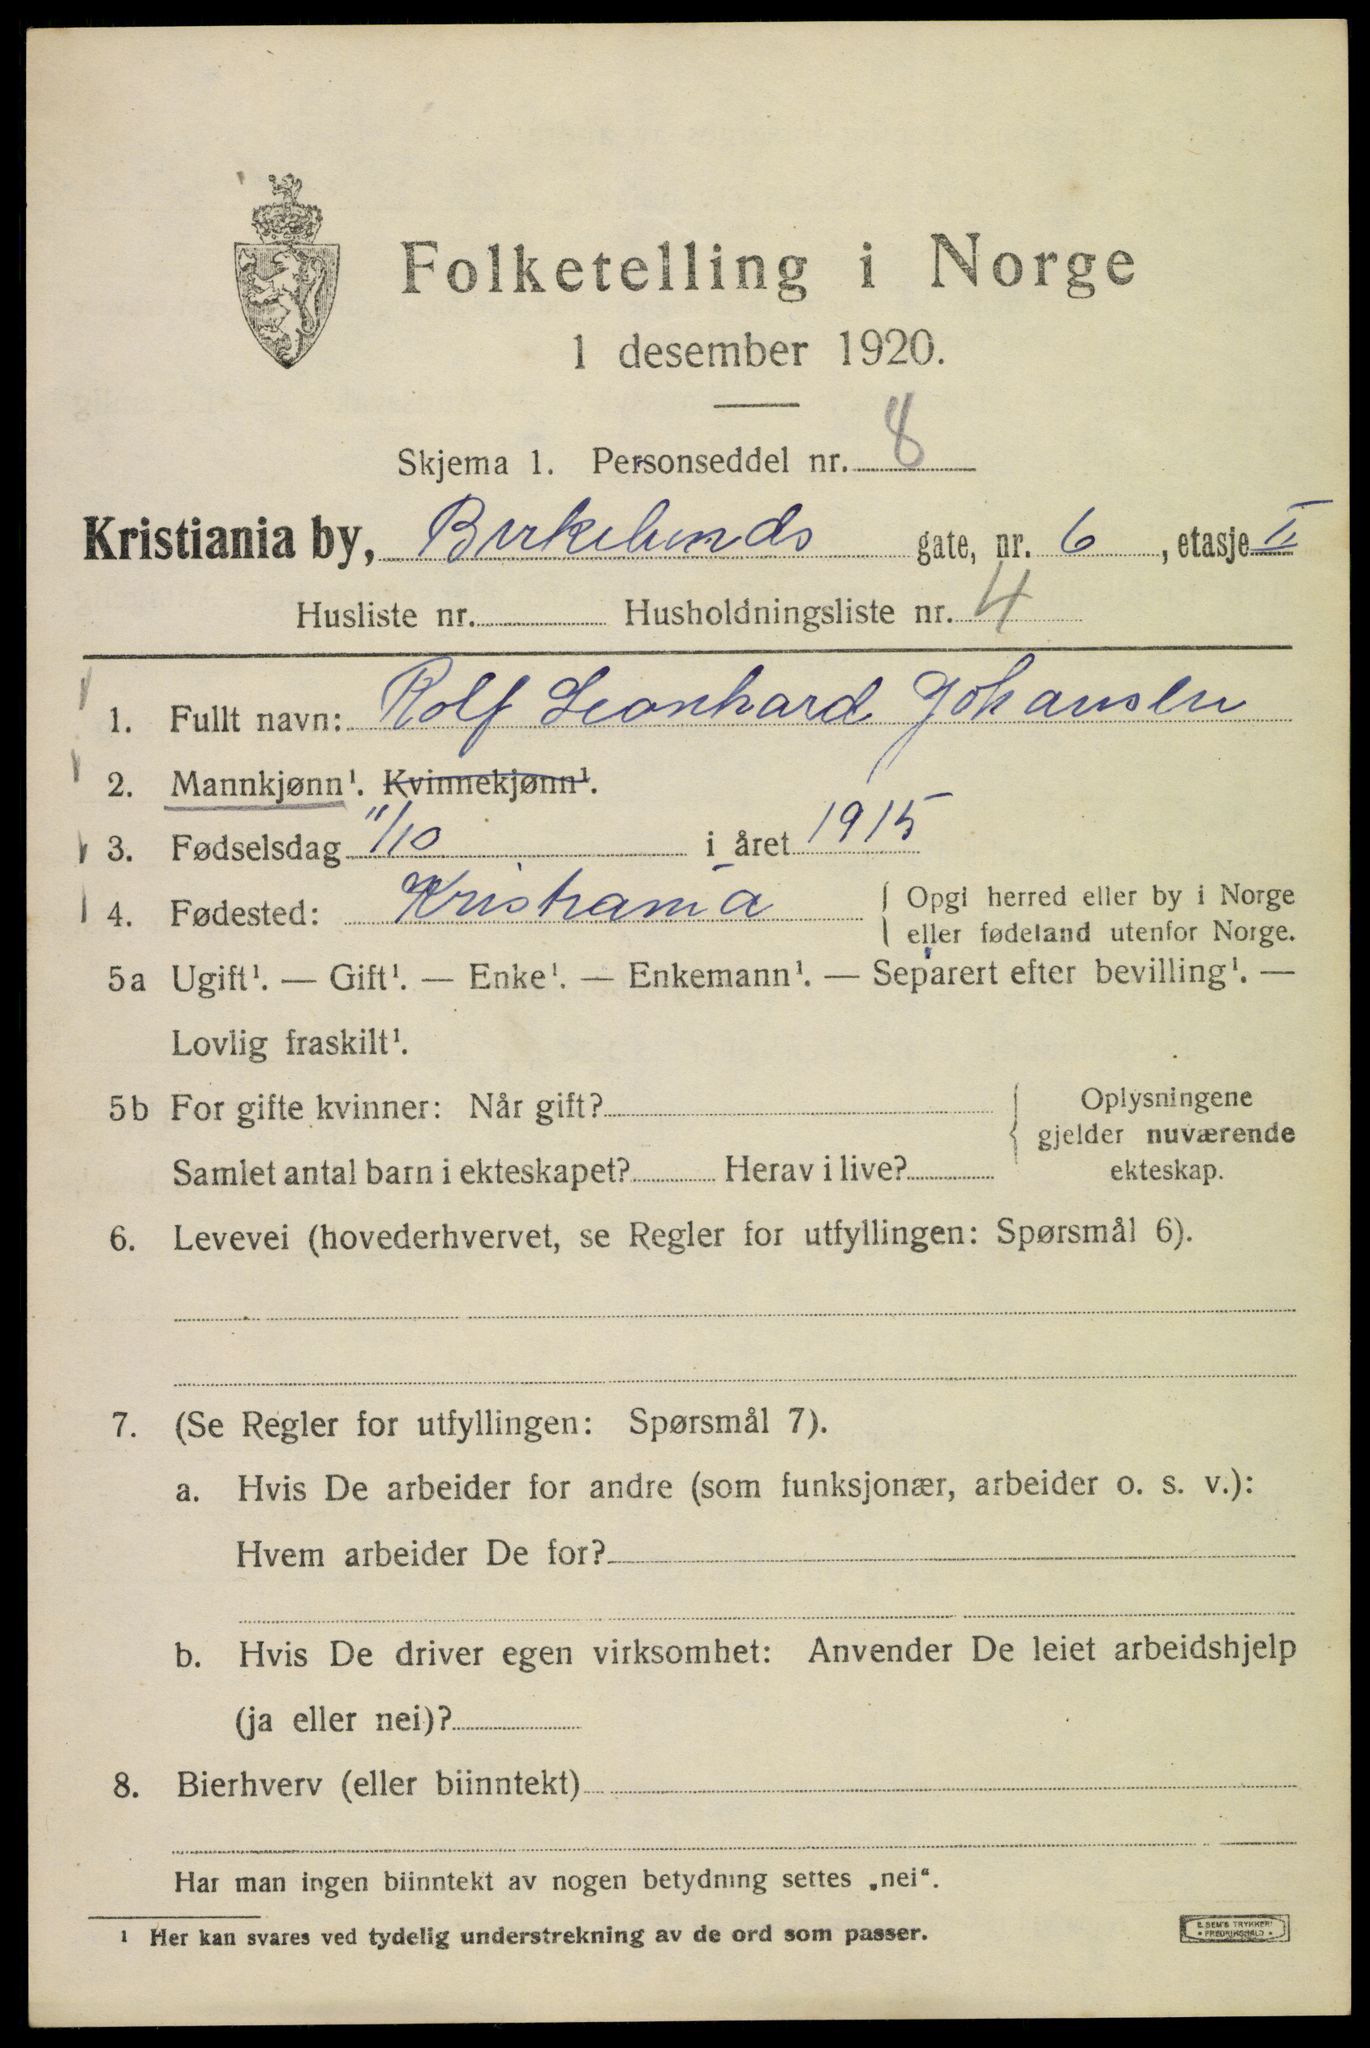 Folketelling i Norge
1 desember 1920.
Skjema 1. Personseddel nr. 8
Kristiania by, Birkelunds gate, nr. 6, etasje II
Husliste nr. Husholdningsliste nr. 4
1. Fullt navn: Rolf Leonhard Johansen
2. Mannkjønn¹. Kvinnekjønn¹.
3. Fødselsdag 11/10 i året 1915
4. Fødested: Kristiania { Opgi herred eller by i Norge
eller fødeland utenfor Norge.
5a Ugift¹. — Gift¹. — Enke¹. — Enkemann¹. — Separert efter bevilling¹. —
Lovlig fraskilt¹.
5b For gifte kvinner: Når gift?
Samlet antal barn i ekteskapet? Herav i live?
{ Oplysningene
gjelder nuværende
ekteskap.
6. Levevei (hovederhvervet, se Regler for utfyllingen: Spørsmål 6).
7. (Se Regler for utfyllingen: Spørsmål 7).
a. Hvis De arbeider for andre (som funksjonær, arbeider o. s. v.):
Hvem arbeider De for?
b. Hvis De driver egen virksomhet: Anvender De leiet arbeidshjelp
(ja eller nei)?
8. Bierhverv (eller biinntekt)
Har man ingen biinntekt av nogen betydning settes „nei“.
¹ Her kan svares ved tydelig understrekning av de ord som passer.
E. SEM'S TRYKKERI
• FREDRIKSHALD •